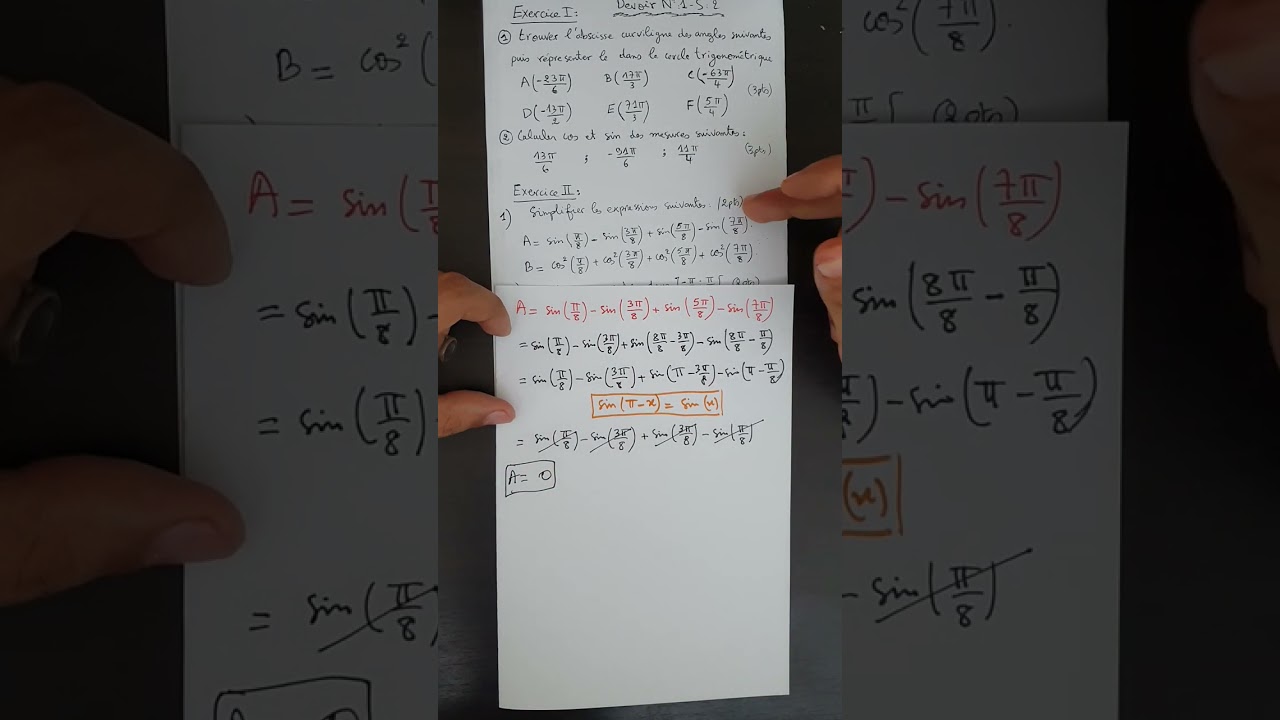 Exercice I: Devoir N°1-S.2
① trouver l'abscisse curviligne des angles suivants
puis réprésenter le dans le cercle trigonométrique
A(-23π/6) B(17π/3) C(-63π/4) (3pts)
D(-13π/2) E(71π/3) F(5π/4)
② Calculer cos et sin des mesures suivantes:
13π/6 ; -91π/6 ; 11π/4 (3pts)
Exercice II:
1) Simplifier les expressions suivantes. (2pts)
A = sin(π/8) - sin(3π/8) + sin(5π/8) - sin(7π/8).
B = cos²(π/8) + cos²(3π/8) + cos²(5π/8) + cos²(7π/8).
A = sin(π/8) - sin(3π/8) + sin(5π/8) - sin(7π/8)
= sin(π/8) - sin(3π/8) + sin(8π/8 - 3π/8) - sin(8π/8 - π/8)
= sin(π/8) - sin(3π/8) + sin(π - 3π/8) - sin(π - π/8)
sin(π-x) = sin(x)
= sin(π/8) - sin(3π/8) + sin(3π/8) - sin(π/8)
A = 0